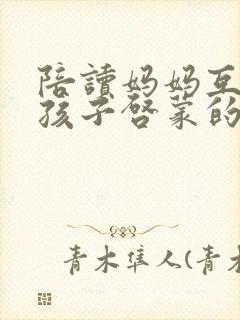 陪讀妈妈互
孩子啓蒙的
青木隼人(青木